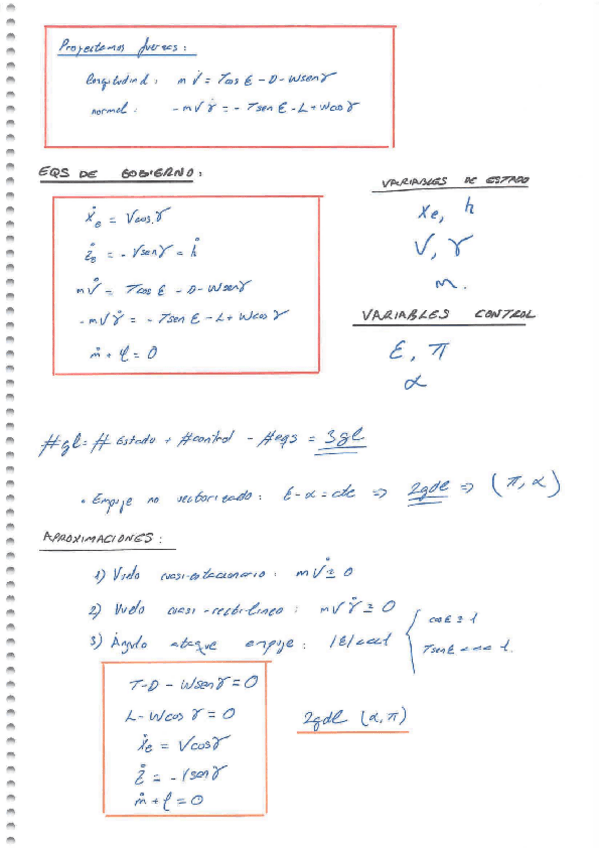 Proyectamos fuerzas:
longitudinal: mV̇ = Tcos Ɛ - D - Wsenγ
normal: -mVγ̇ = - Tsen Ɛ - L + Wcosγ
EQS DE GOBIERNO:
ẋe = Vcosγ
że = - Vsenγ = ḣ
mV̇ = Tcos Ɛ - D - Wsenγ
-mVγ̇ = - Tsen Ɛ - L + Wcosγ
ṁ + φ = 0
VARIABLES DE ESTADO
xe, h
V, γ
m.
VARIABLES CONTROL
Ɛ, π
α
#gl = # Estado + #control - #eqs = 3gl
• Empuje no vectorizado: Ɛ - α = cte => 2gdl => (π, α)
APROXIMACIONES:
1) Vuelo cuasi-estacionario: mV̇ ≅ 0
2) Vuelo cuasi-rectilíneo: mVγ̇ ≅ 0
3) Ángulo ataque empuje: |Ɛ| <<< 1 { cos Ɛ ≅ 1
Tsen Ɛ <<< L.
T - D - Wsenγ = 0
L - Wcosγ = 0
ẋe = Vcosγ
ż = - Vsenγ
ṁ + φ = 0
2gdl (α, π)